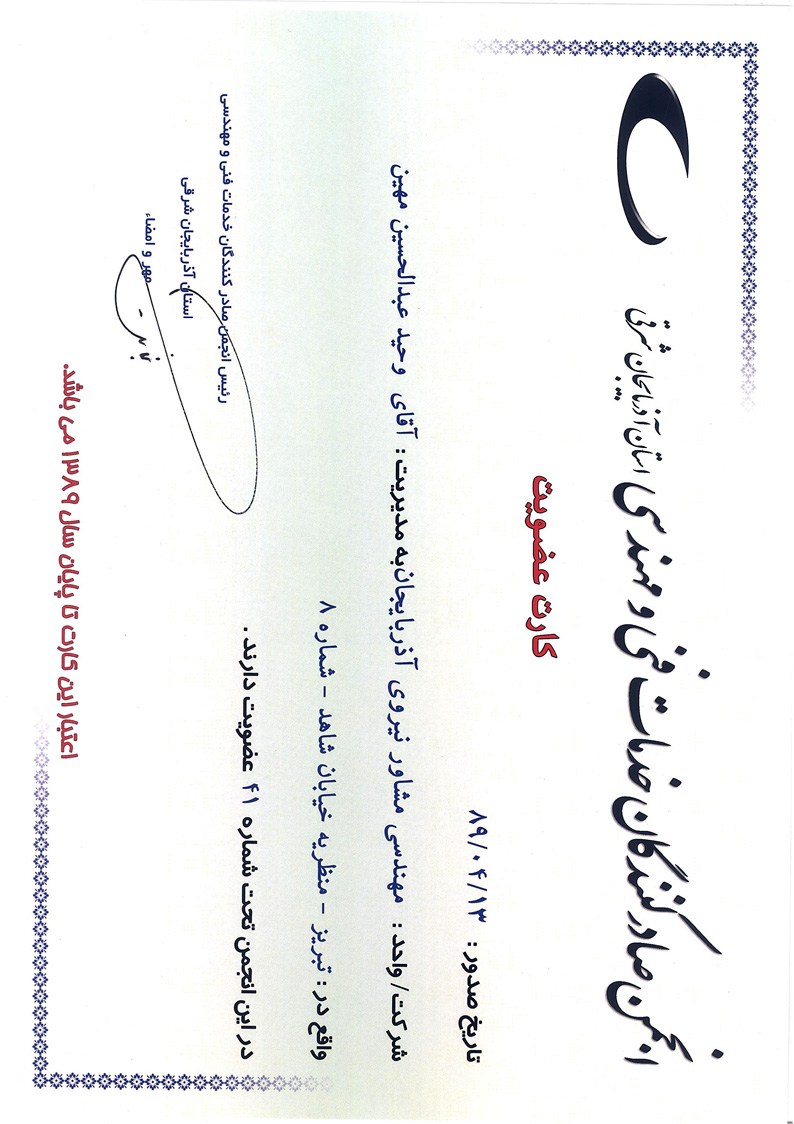 انجمن صادرکنندگان خدمات فنی و مهندسی استان آذربایجان شرقی
کارت عضویت
تاریخ صدور : ۸۹/۰۴/۱۳
شرکت/ واحد : مهندسی مشاور نیروی آذربایجان به مدیریت : آقای وحید عبدالحسین مهین
واقع در : تبریز - منظریه خیابان شاهد - شماره ۸
در این انجمن تحت شماره ۴۱ عضویت دارند .
رئیس انجمن صادر کنندگان خدمات فنی و مهندسی
استان آذربایجان شرقی
مهر و امضاء
اعتبار این کارت تا پایان سال ۱۳۸۹ می باشد.